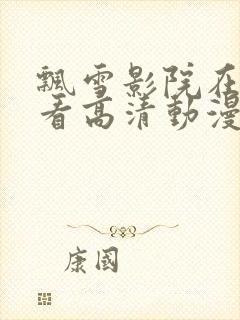 飄雪影院在
看高清動漫
康國